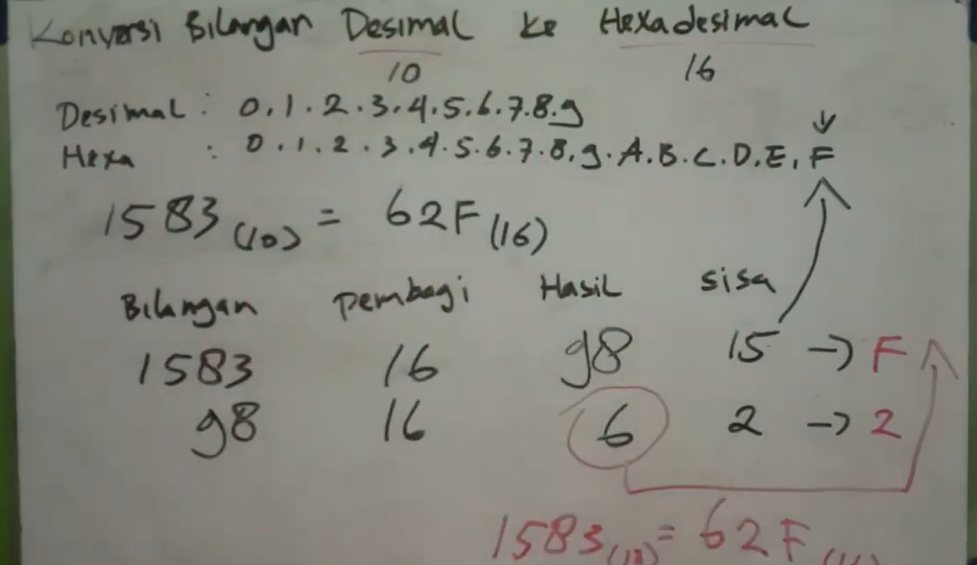 Konversi Bilangan Desimal ke Hexadesimal
10 16
Desimal : 0.1.2.3.4.5.6.7.8.9
Hexa : 0.1.2.3.4.5.6.7.8.9.A.B.C.D.E.F
1583 (10) = 62F (16)
Bilangan Pembagi Hasil Sisa
1583 16 98 15 → F
98 16 6 2 → 2
1583 (10) = 62F